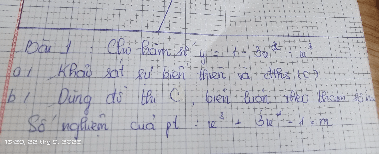 Bài 1: Cho hàm số y = 1 + 3x² - x³
a/ Khảo sát sự biến thiên và đồ thị (C)
b/ Dùng đồ thị C, biện luận theo tham số m
Số nghiệm của pt: x³ + 3x² - 1 = m